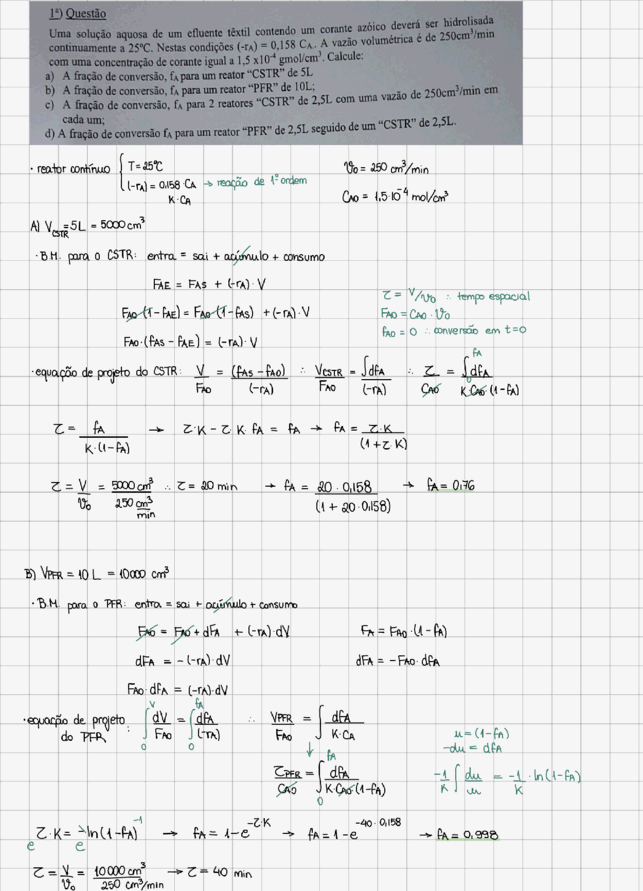 1ª) Questão
Uma solução aquosa de um efluente têxtil contendo um corante azóico deverá ser hidrolisada
continuamente a 25ºC. Nestas condições (-rA) = 0,158 CA. A vazão volumétrica é de 250cm³/min
com uma concentração de corante igual a 1,5 x10⁻⁴ gmol/cm³. Calcule:
a) A fração de conversão, fA para um reator “CSTR” de 5L
b) A fração de conversão, fA para um reator “PFR” de 10L;
c) A fração de conversão, fA para 2 reatores “CSTR” de 2,5L com uma vazão de 250cm³/min em
cada um;
d) A fração de conversão fA para um reator “PFR” de 2,5L seguido de um “CSTR” de 2,5L.
· reator contínuo { T=25ºC
(-rA) = 0,158 · CA → reação de 1ª ordem
K · CA
V0 = 250 cm³/min
CAO = 1,5·10⁻⁴ mol/cm³
A) VCSTR = 5L = 5000 cm³
· B.M. para o CSTR: entra = sai + acúmulo + consumo
FAE = FAS + (-rA) · V
FAO·(1-fAE) = FAO·(1-fAS) + (-rA) · V
FAO·(fAS - fAE) = (-rA) · V
τ = V/V0 ∴ tempo espacial
FAO = CAO · V0
fAO = 0 ∴ conversão em t=0
· equação de projeto do CSTR: V/FAO = (fAS - fAO)/(-rA) ∴ VCSTR/FAO = ∫dfA/(-rA) ∴ τ/CAO = ∫₀^fA dfA/K·CAO·(1-fA)
τ = fA/K·(1-fA) → τ·K - τ·K·fA = fA → fA = τ·K/(1+τ·K)
τ = V/V0 = 5000 cm³/250 cm³/min ∴ τ = 20 min → fA = 20·0,158/(1 + 20·0,158) → fA = 0,76
B) VPFR = 10 L = 10000 cm³
· B.M. para o PFR: entra = sai + acúmulo + consumo
FAO = FAO + dFA + (-rA)·dV
FA = FAO·(1-fA)
dFA = -(-rA)·dV
dFA = -FAO·dfA
FAO·dfA = (-rA)·dV
· equação de projeto do PFR: ∫₀^V dV/FAO = ∫₀^fA dfA/(-rA) ∴ VPFR/FAO = ∫ dfA/K·CA
↓
τPFR/CAO = ∫₀^fA dfA/K·CAO·(1-fA)
u = (1-fA)
-du = dfA
-1/K ∫ du/u = -1/K · ln(1-fA)
e^τ·K = e^-ln(1-fA)^-1 → fA = 1-e^-τ·K → fA = 1-e^-40·0,158 → fA = 0,998
τ = V/V0 = 10000 cm³/250 cm³/min → τ = 40 min